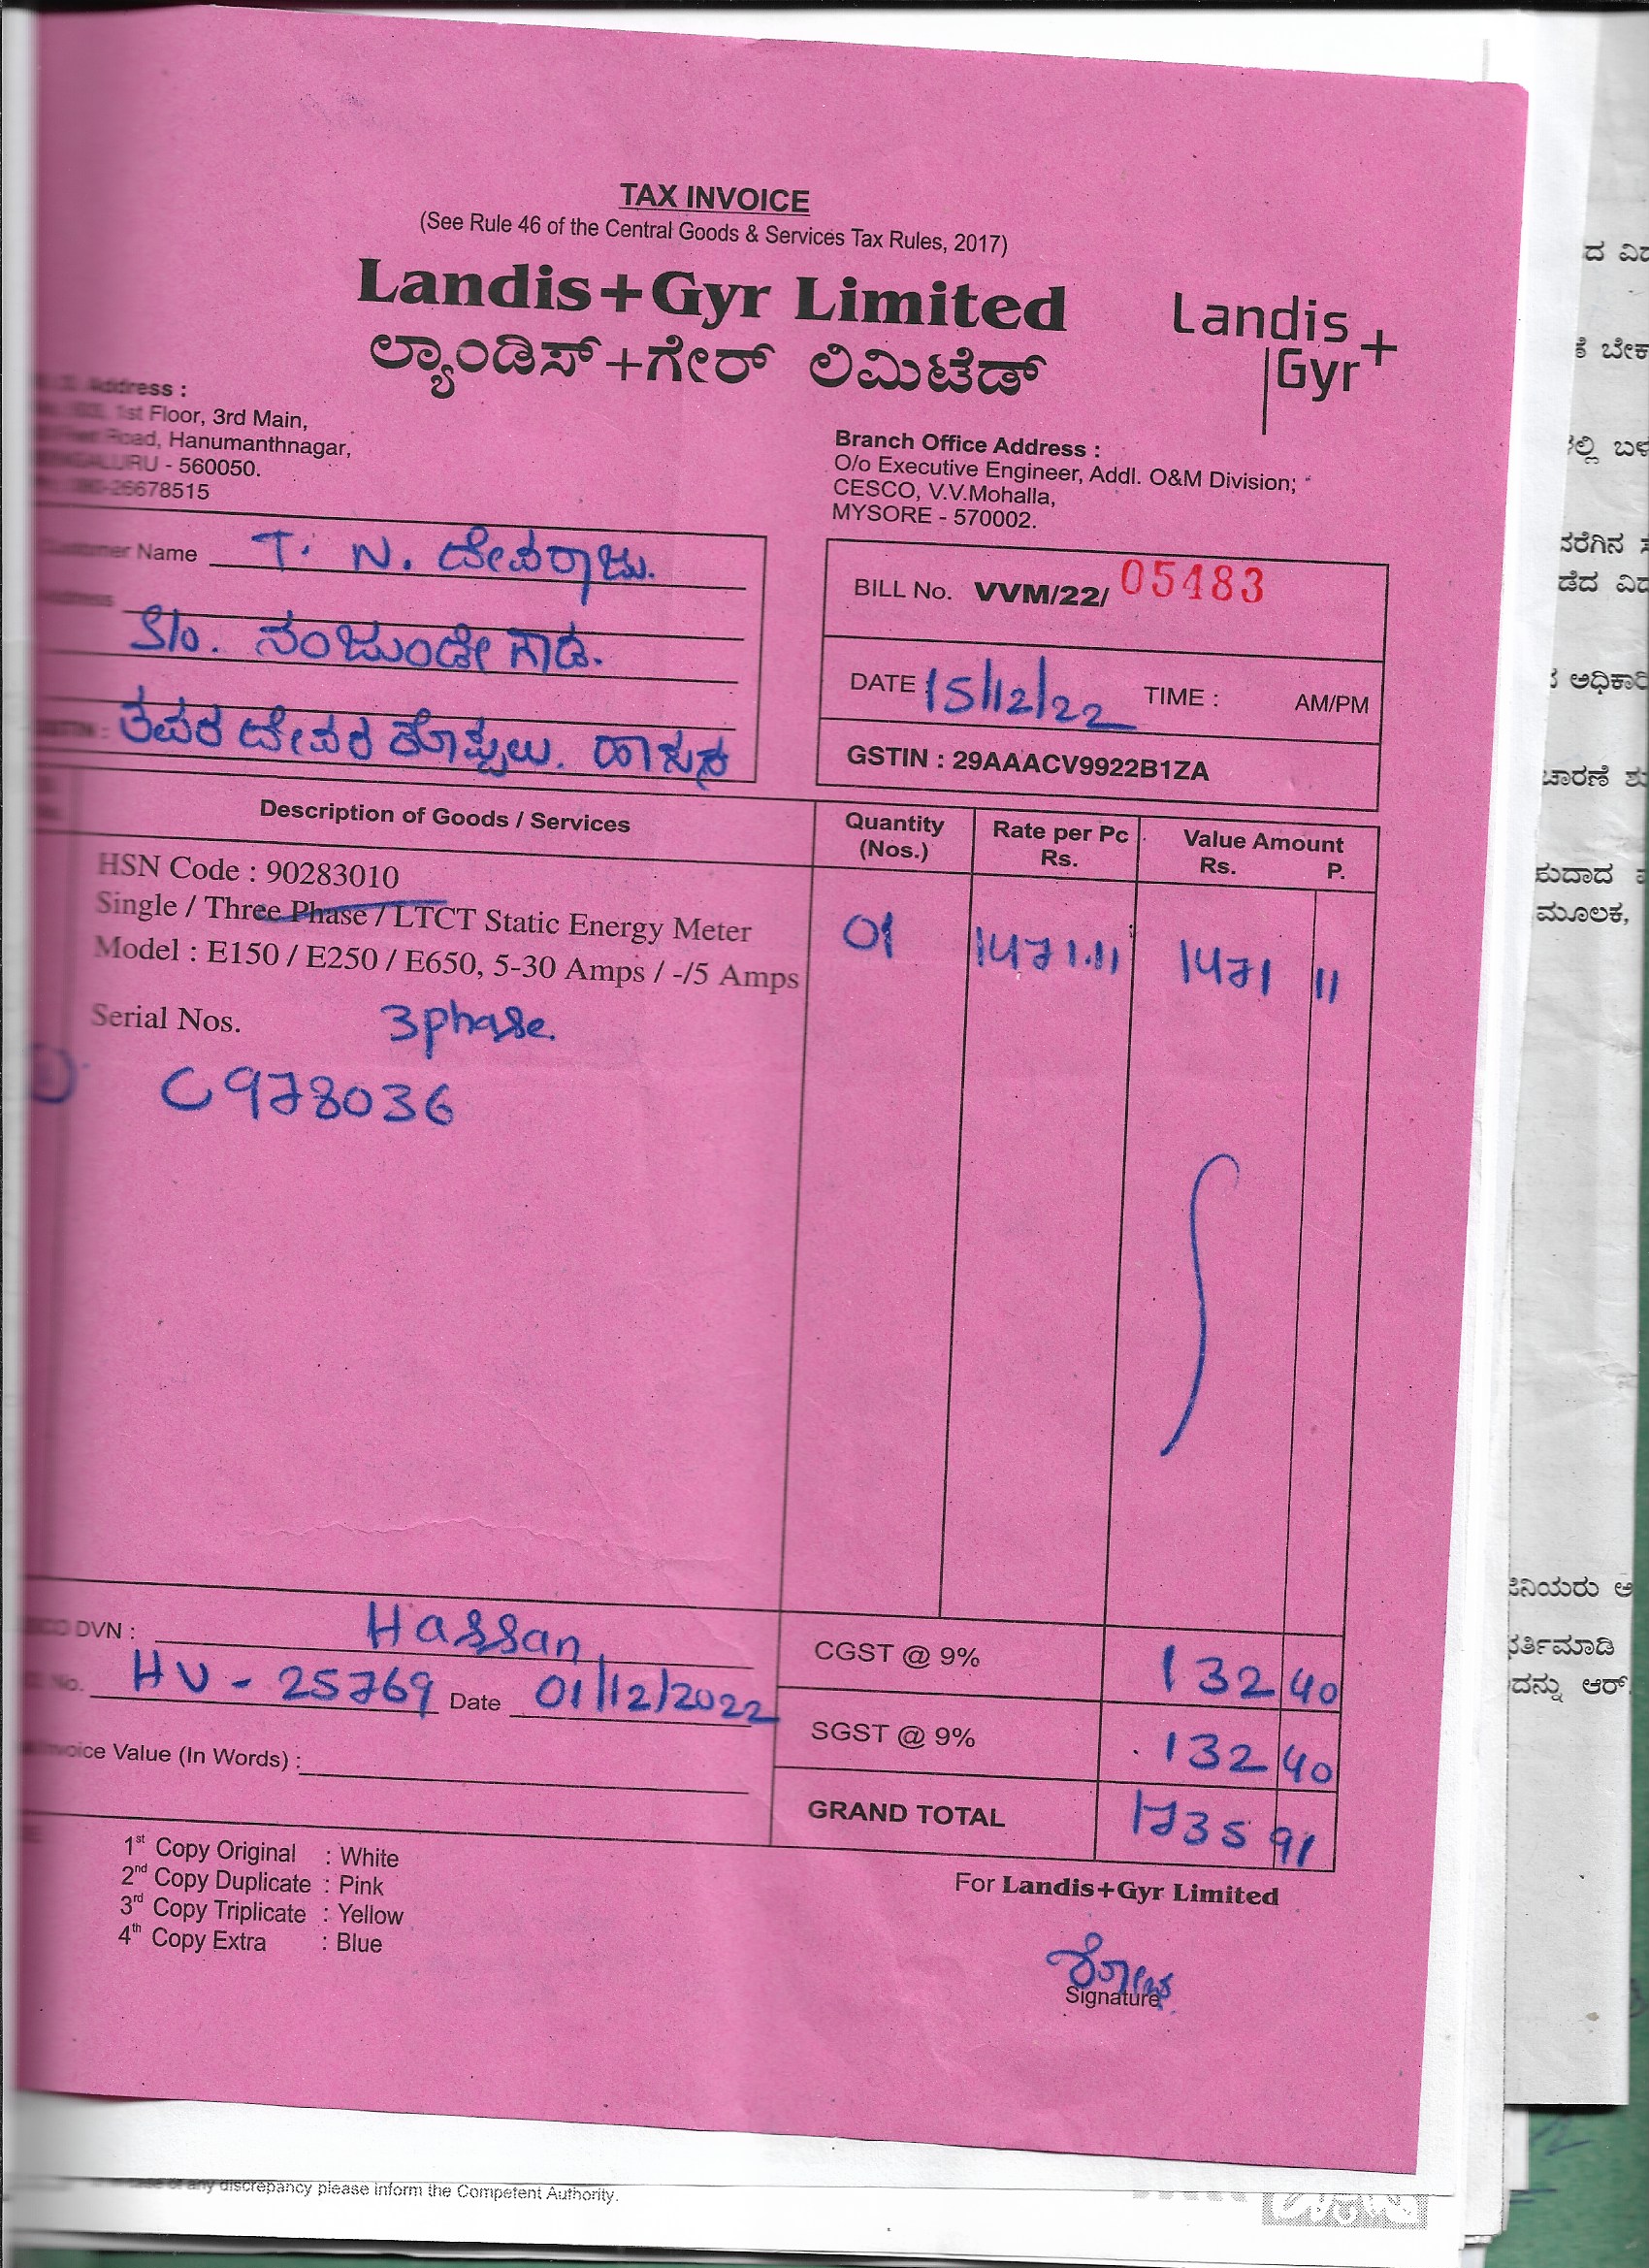 TAX INVOICE
(See Rule 46 of the Central Goods & Services Tax Rules, 2017)
Landis+Gyr Limited
ಲ್ಯಾಂಡಿಸ್+ಗೇರ್ ಲಿಮಿಟೆಡ್
Landis
Gyr+
Address :
1st Floor, 3rd Main,
Road, Hanumanthnagar,
- 560050.
-26678515
Branch Office Address :
O/o Executive Engineer, Addl. O&M Division;
CESCO, V.V.Mohalla,
MYSORE - 570002.
Customer Name T. N. ದೇವರಾಜು.
S/o. ನಂಜುಂಡೇಗೌಡ.
GSTIN : ತವರ ದೇವರ ಕೊಪ್ಪಲು. ಹಾಸನ
BILL No. VVM/22/ 05483
DATE 15/12/22 TIME : AM/PM
GSTIN : 29AAACV9922B1ZA
Description of Goods / Services Quantity (Nos.) Rate per Pc Rs. Value Amount Rs. P.
HSN Code : 90283010
Single / Three Phase / LTCT Static Energy Meter 01 1471.11 1471 11
Model : E150 / E250 / E650, 5-30 Amps / -/5 Amps
Serial Nos. 3phase.
C978036
DVN : Hassan
No. HV - 25769 Date 01/12/2022
Invoice Value (In Words) :
CGST @ 9% 132 40
SGST @ 9% 132 40
GRAND TOTAL 1735 91
1st Copy Original : White
2nd Copy Duplicate : Pink
3rd Copy Triplicate : Yellow
4th Copy Extra : Blue
For Landis+Gyr Limited
Signature
any discrepancy please inform the Competent Authority.
ಬೇಕ
ಅಧಿಕಾರಿ
ಮೂಲಕ,